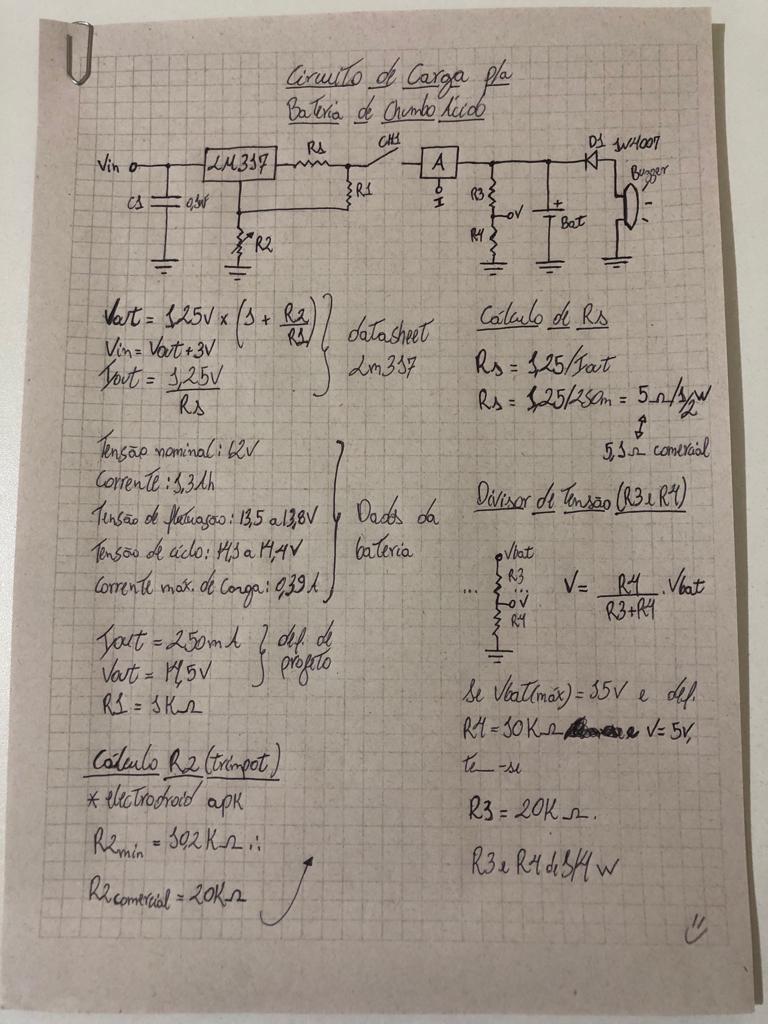 Circuito de Carga p/a
Bateria de Chumbo Ácido
Vin
LM317
Rs
CH1
A
D1 1N4007
Buzzer
C1
R1
I
R3
V
R4
Bat
R2
Vout = 1,25V × (1 + R2/R1)
Vin = Vout + 3V
Iout = 1,25V/Rs
datasheet
Lm317
Tensão nominal: 12V
Corrente: 1,3Ah
Tensão de flutuação: 13,5 a 13,8V
Tensão de ciclo: 14,1 a 14,4V
Corrente máx. de carga: 0,39A
Dados da
bateria
Iout = 250mA
Vout = 14,5V
def. de
projeto
R1 = 1KΩ
Cálculo R2 (trimpot)
* electrodroid apk
R2mín = 10,2KΩ ∴
R2comercial = 20KΩ
Cálculo de Rs
Rs = 1,25/Iout
Rs = 1,25/250m = 5Ω/1/2W
5,1Ω comercial
Divisor de Tensão (R3 e R4)
Vbat
R3
... ...
V
R4
V = R4/(R3+R4) . Vbat
Se Vbat(máx) = 15V e def.
R4 = 10KΩ e V = 5V,
tem-se
R3 = 20KΩ.
R3 e R4 de 1/4W